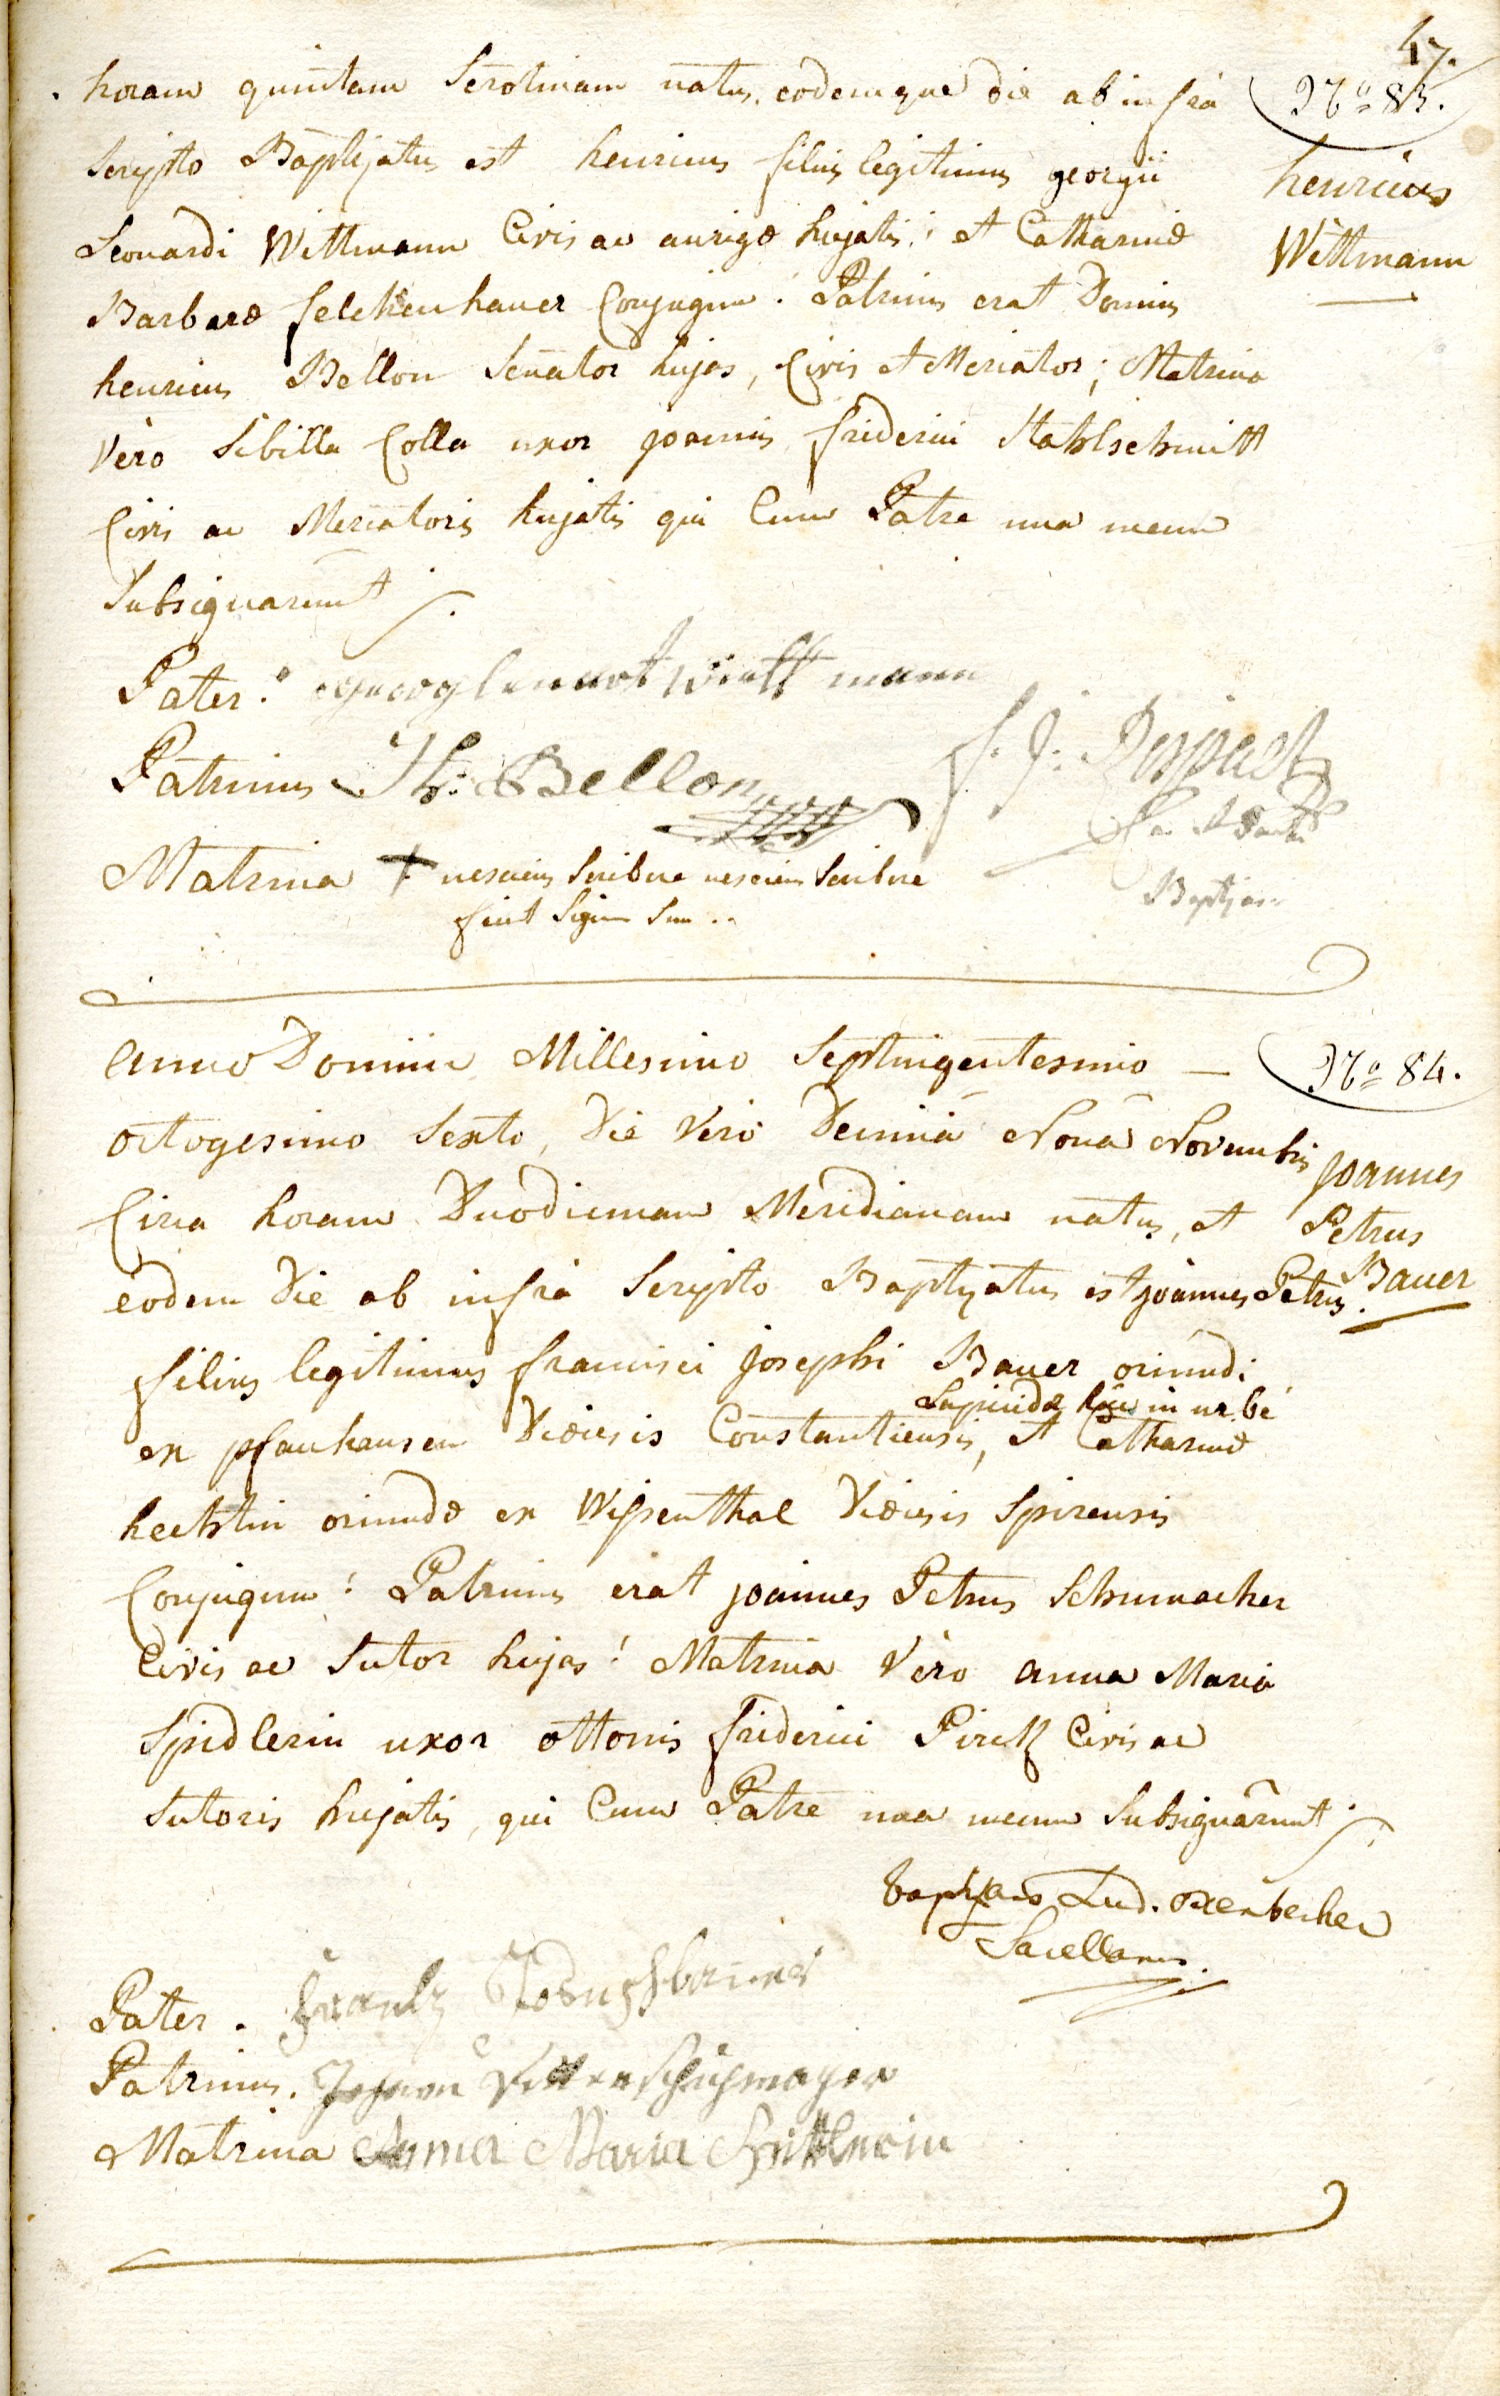 47.
horam quintam Serotinam natus, eodemque die ab infra
No 83.
Scripto Baptizatus est henricus filius legitimus georgii
henricus
Leonardi Wittmann Civis ac aurigæ hujatis: et Catharinæ
Wittmann
Barbaræ felckenhauer Conjugum: Patrinus erat Dominus
henricus Bellon Senator hujas, Civis et Mercator; Matrina
Vero Sibilla Colla uxor joannis friderici Stahlschmitt
Civis ac Mercatoris hujatis qui Cum Patre una mecum
Subsignarunt
Pater: wittmann
Patrinus H: Bellon
F. J.
Matrina + nesciens Scribere nesciens Scribere
fecit Signum Suum
Baptizans
anno Domini Millesimo Septingentesimo —
No 84.
octogesimo Sexto, Die Vero Decimâ Nonâ Novembris
joannes
Circa horam Duodecimam Meridianam natus, et
Petrus
eodem Die ab infra Scripto Baptizatus est joannes Petrus
Bauer
filius legitimus francisci josephi Bauer oriundi
Lapicidæ hâc in urbe
ex pfauhausen Diœcesis Constantiensis, et Catharinæ
hechtin oriundæ ex Wissenthal Diœcesis Spirensis
Conjugum: Patrinus erat joannes Petrus Schumacher
Civis ac Sutor hujas: Matrina Vero anna Maria
Spidlerin uxor ottonis friderici Pirck Civis ac
Sutoris hujatis, qui Cum Patre una mecum Subsignârunt
baptizans Lud. Oxenbecher
Sacellanus.
Pater. Frantz Josephbauer
Patrinus. Johann Petter schuhmacher
Matrina Anna Maria Spittlerin